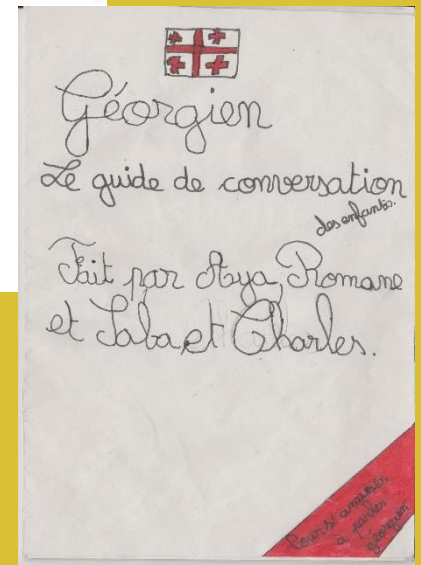 Géorgien
Le guide de conversation
des enfants.
Fait par Aya, Romane
et Saba et Charles.
Pour s'amuser
à parler
géorgien